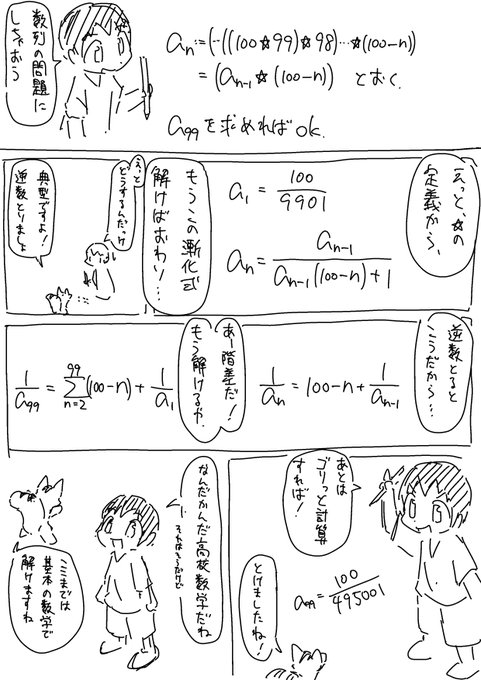 数列の問題に
しちゃおう
aₙ:=(…(((100☆99)☆98)…☆(100-n))
=(aₙ₋₁☆(100-n)) とおく.
a₉₉を求めればok.
えっと、☆の
定義から、
a₁ = 100/9901
aₙ = aₙ₋₁/(aₙ₋₁(100-n)+1)
もうこの漸化式
解けばおわり…
えっと
どうするんだっけ
典型ですよ!
逆数とりましょ
逆数とると
こうだから…
1/aₙ = 100-n + 1/aₙ₋₁
あー階差だ!
もう解けるや.
1/a₉₉ = Σ[n=2→99](100-n) + 1/a₁
あとは
ゴリっと計算
すれば!
a₉₉ = 100/495001
とけましたね!
なんだかんだ高校数学だね
ここまでは
基本の数学で
解けますね